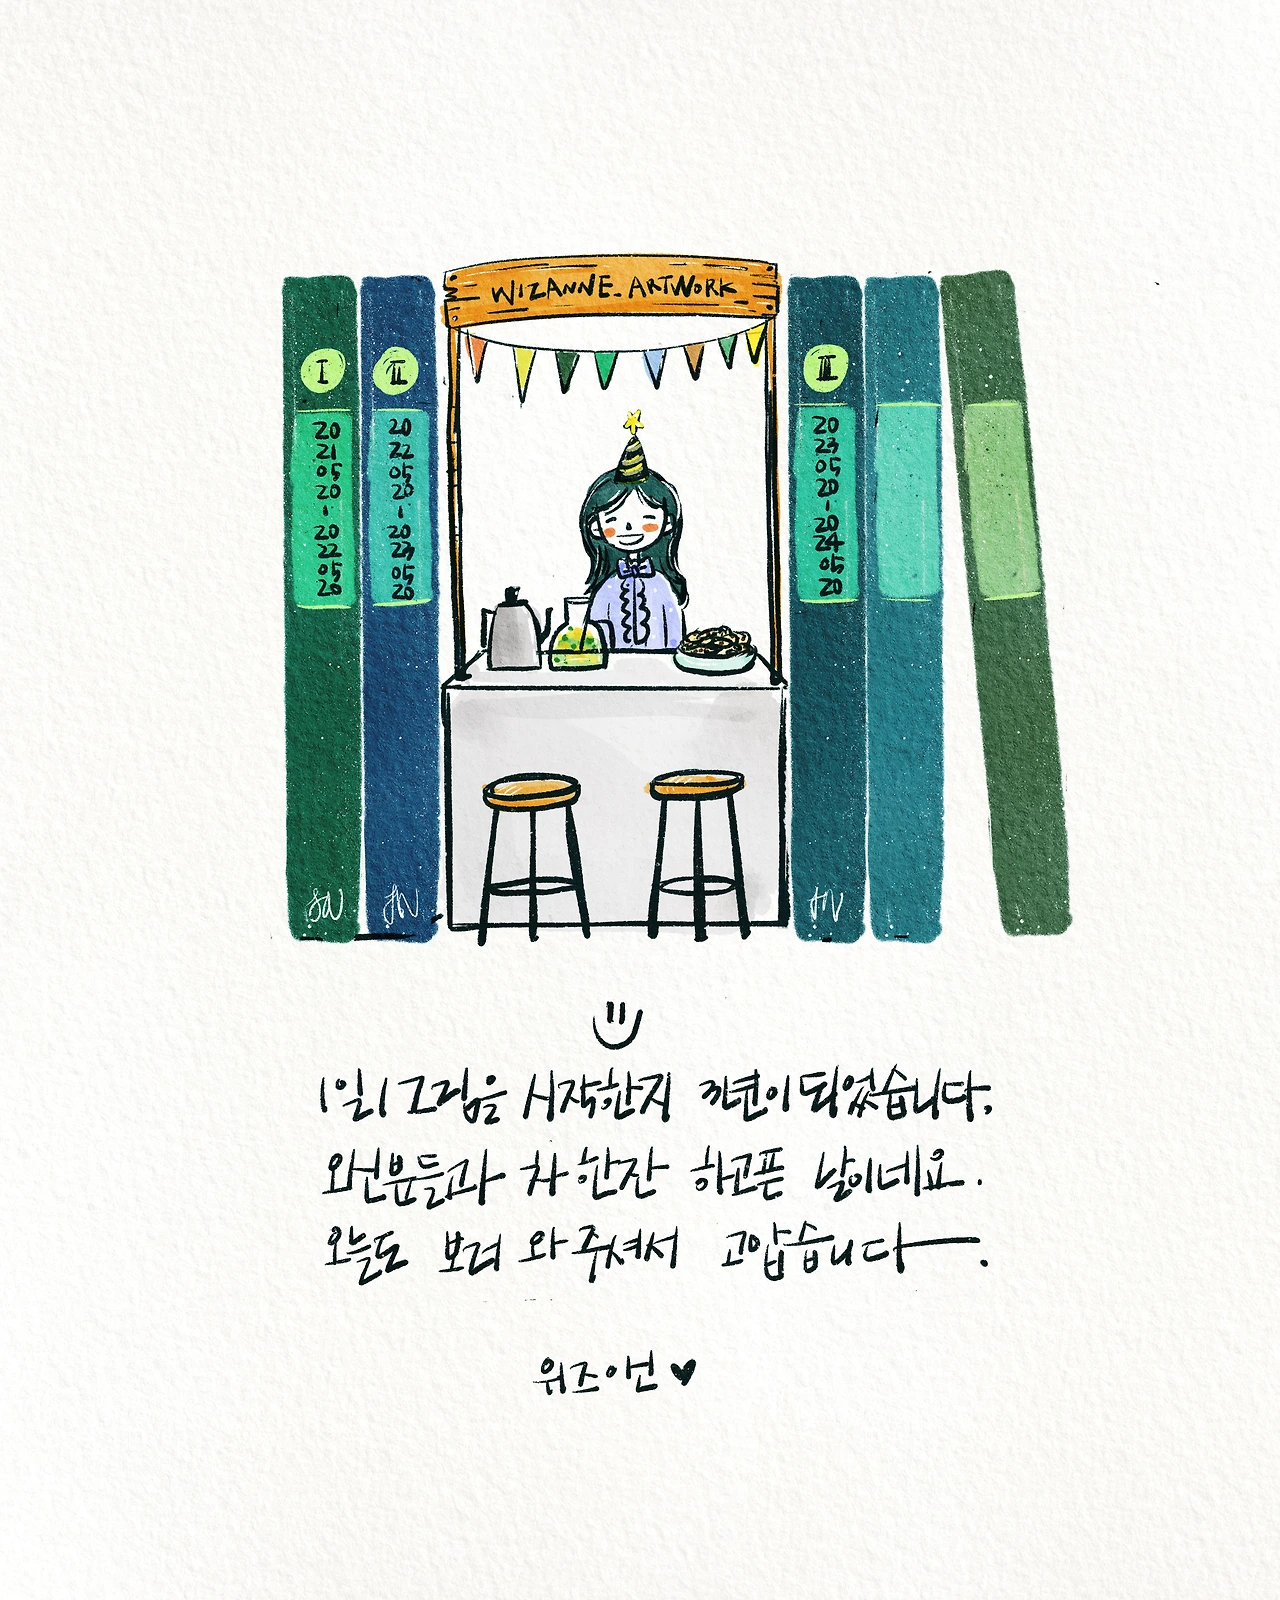 WIZANNE. ARTWORK
I
20
21
05
20
-
20
22
05
20
II
20
22
05
20
-
20
23
05
20
III
20
23
05
20
-
20
24
05
20
1일1그림을 시작한지 3년이 되었습니다.
와넌분들과 차 한잔 하고픈 날이네요.
오늘도 보러 와 주셔서 고맙습니다—.
위즈앤 ♥